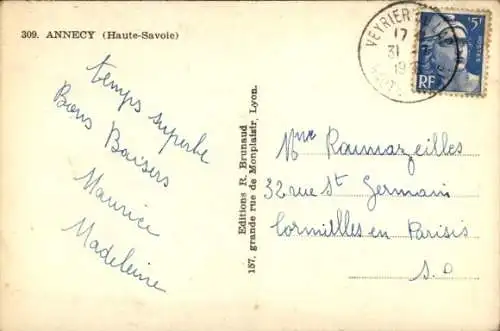 309. ANNECY (Haute-Savoie)
temps superbe
Bons Baisers
Maurice
Madeleine
Editions R. Brunaud
157, grande rue de Monplaisir, Lyon.
VEYRIER
17
31
19
5F
POSTES
RF
Mme Raumazeilles
32 rue St Germain
Cormeilles en Parisis
S.O